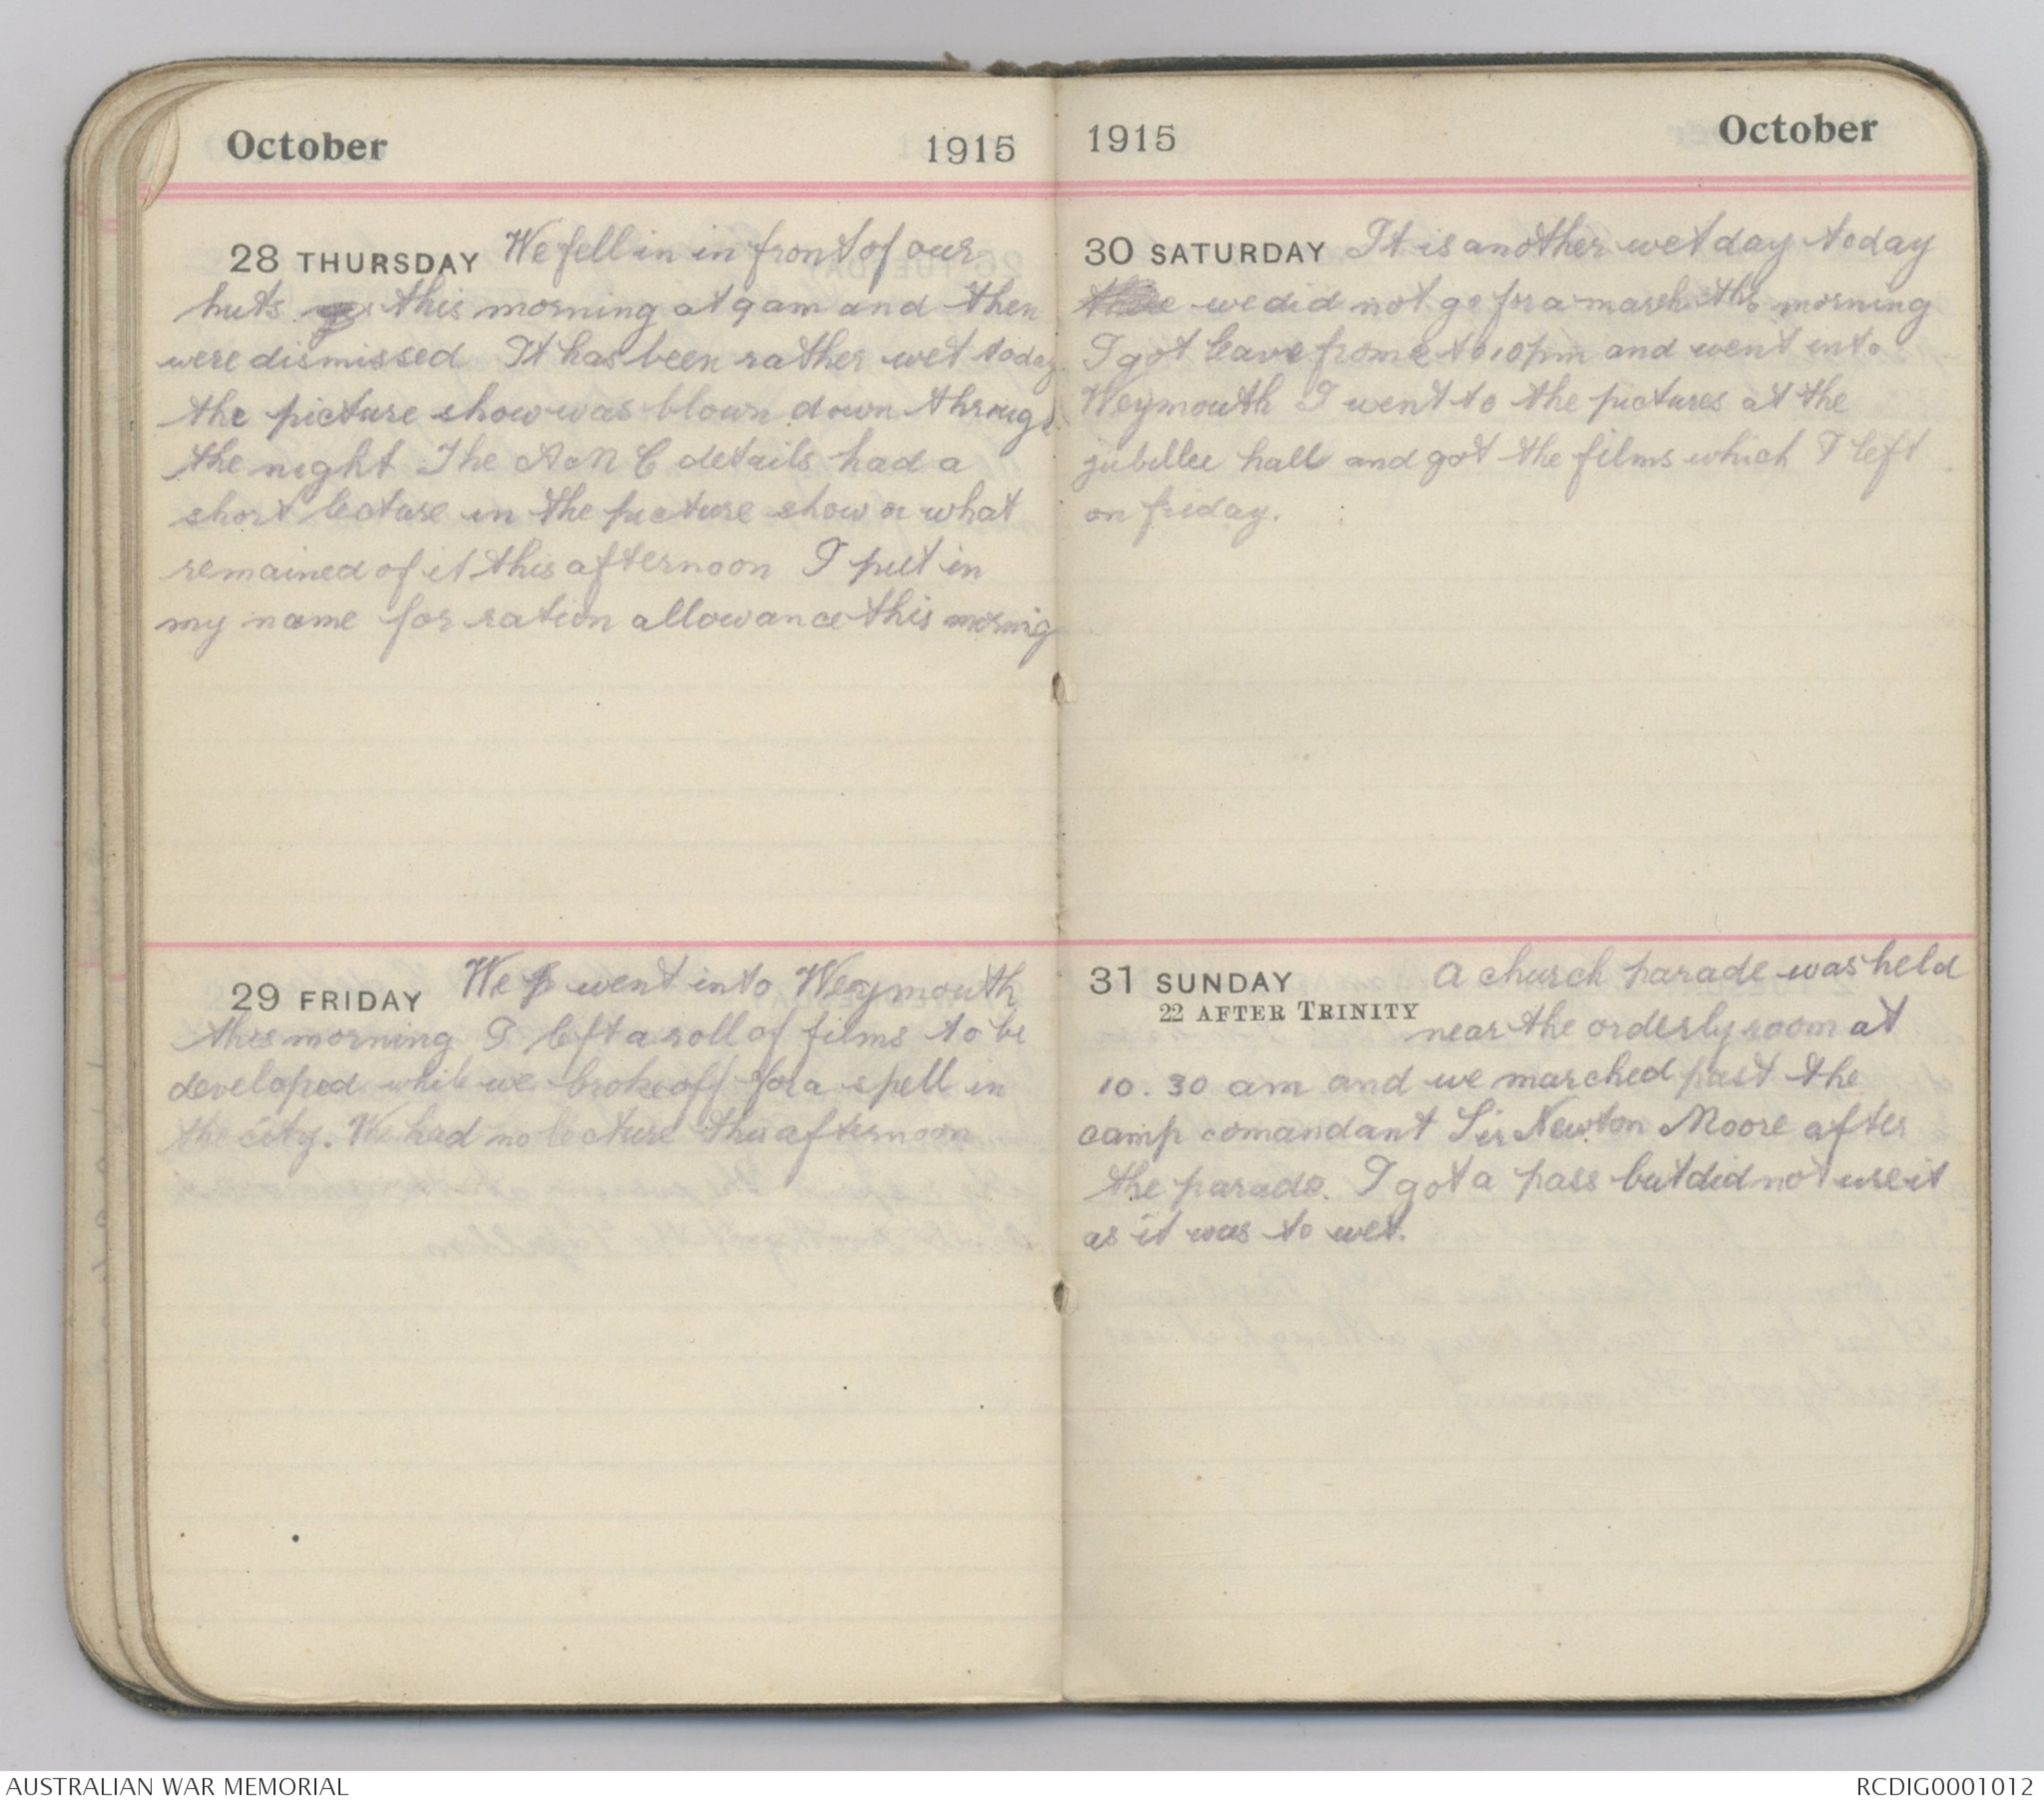 October 1915
28 THURSDAY We fell in in front of our
huts this morning at 9 am and then
were dismissed It has been rather wet today
the picture show was blown down throug
the night The A & N C details had a
short lecture in the picture show or what
remained of it this afternoon I put in
my name for ration allowance this morning
29 FRIDAY We went into Weymouth
this morning I left a roll of films to be
developed while we broke off for a spell in
the city. We had no lecture this afternoon
1915 October
30 SATURDAY It is another wet day today
we did not go for a march this morning
I got leave from to 10 pm and went into
Weymouth I went to the pictures at the
jubillee hall and got the films which I left
on friday.
31 SUNDAY A church parade was held
22 AFTER TRINITY near the orderly room at
10.30 am and we marched past the
camp comandant Sir Newton Moore after
the parade. I got a pass but did not use it
as it was to wet.
AUSTRALIAN WAR MEMORIAL RCDIG0001012